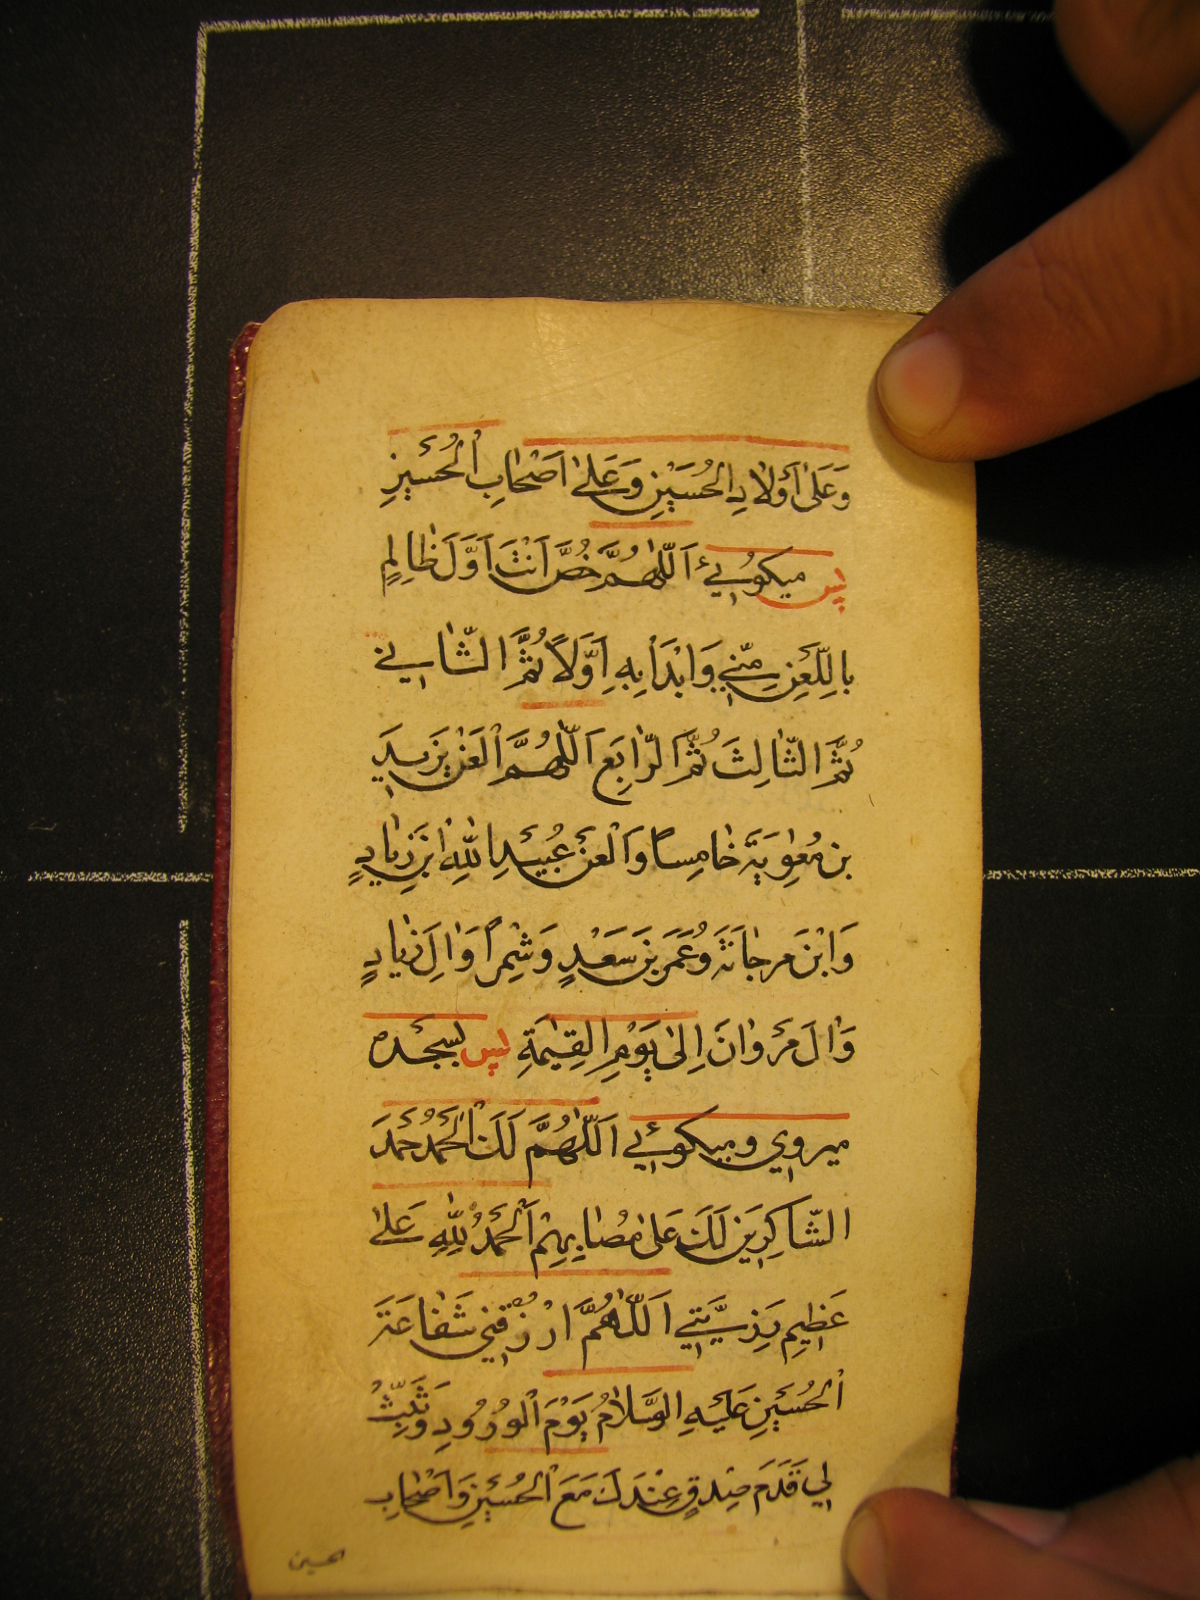 وَعَلىٰ اَوْلادِ الْحُسَيْنِ وَعَلىٰ اَصْحابِ الْحُسَيْنِ
پس میکوئی اَللّٰهُمَّ خُصَّ اَنْتَ اَوَّلَ ظالِمٍ
بِاللَّعْنِ مِنّي وَابْدَأْ بِهِ اَوَّلاً ثُمَّ الثّاني
ثُمَّ الثّالِثَ ثُمَّ الرّابِعَ اَللّٰهُمَّ الْعَنْ يَزيدَ
بْنَ مُعٰوِيَةَ خامِساً وَالْعَنْ عُبَيْدَ اللّٰهِ ابْنَ زِيادٍ
وَابْنَ مَرجانَةَ وَعُمَرَ بْنَ سَعْدٍ وَشِمْراً وَالَ زِيادٍ
وَالَ مَرْوانَ اِلىٰ يَوْمِ الْقِيٰمَةِ پس بسجده
میروی ومیکوئی اَللّٰهُمَّ لَكَ الْحَمْدُ حَمْدَ
الشّاكِرينَ لَكَ عَلىٰ مُصابِهِمْ اَلْحَمْدُ لِلّٰهِ عَلىٰ
عَظيمِ رَزِيَّتي اَللّٰهُمَّ ارْزُقْني شَفاعَةَ
الْحُسَيْنِ عَلَيْهِ السَّلامُ يَوْمَ الْوُرُودِ وَثَبِّتْ
لي قَدَمَ صِدْقٍ عِنْدَكَ مَعَ الْحُسَيْنِ وَاَصْحابِ
الحسين